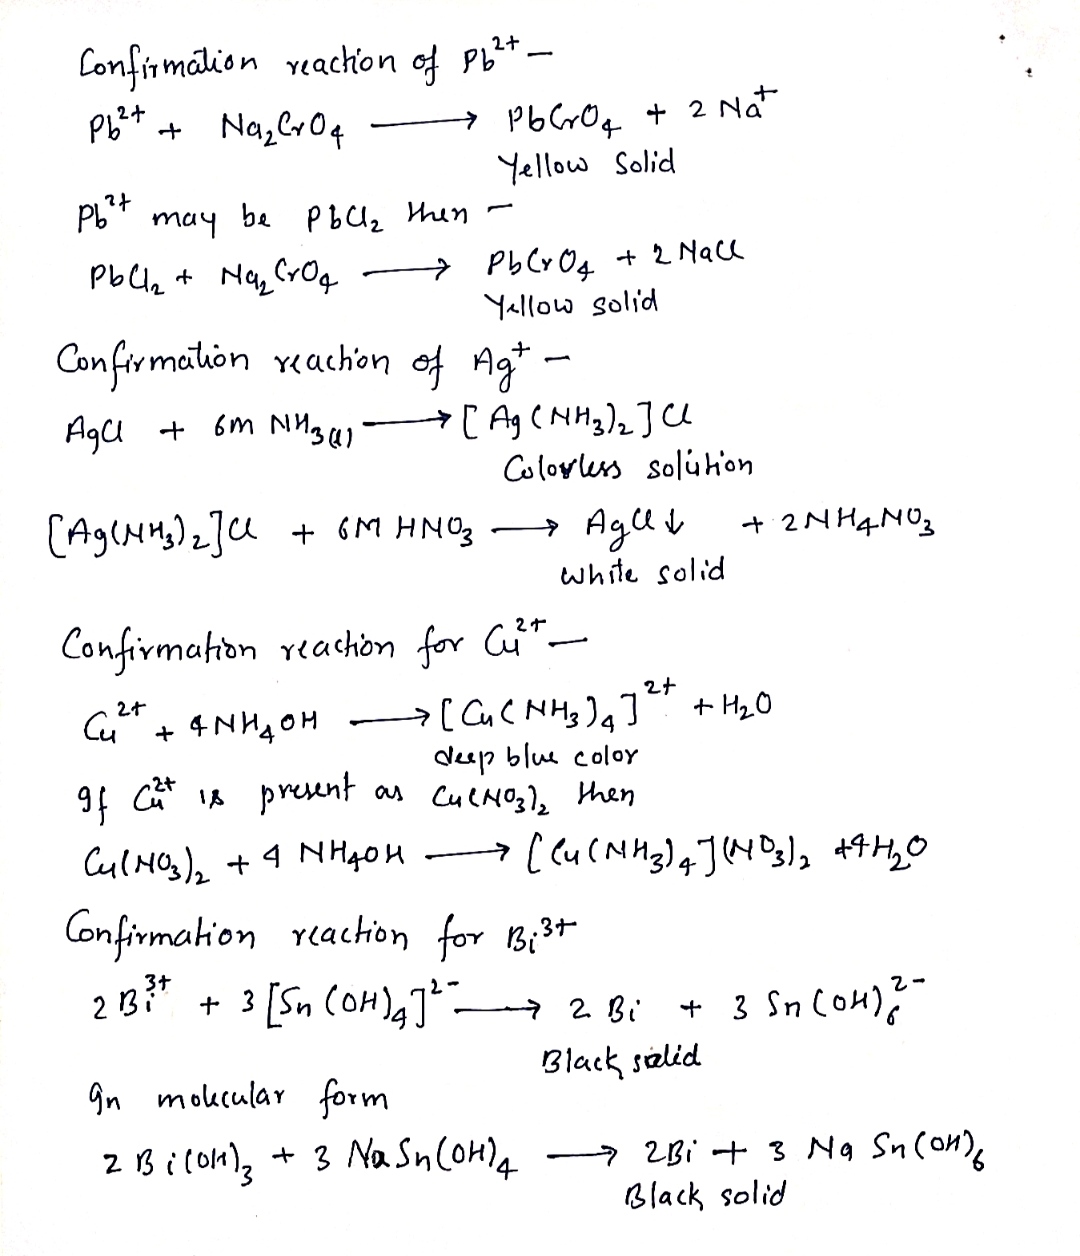 Confirmation reaction of Pb²⁺ —
Pb²⁺ + Na₂CrO₄ ⟶ PbCrO₄ + 2 Na⁺
Yellow Solid
Pb²⁺ may be PbCl₂ then —
PbCl₂ + Na₂CrO₄ ⟶ PbCrO₄ + 2 NaCl
Yellow solid
Confirmation reaction of Ag⁺ —
AgCl + 6m NH₃(l) ⟶ [Ag(NH₃)₂]Cl
Colorless solution
[Ag(NH₃)₂]Cl + 6M HNO₃ ⟶ AgCl↓ + 2NH₄NO₃
white solid
Confirmation reaction for Cu²⁺ —
Cu²⁺ + 4NH₄OH ⟶ [Cu(NH₃)₄]²⁺ + H₂O
deep blue color
If Cu²⁺ is present as Cu(NO₃)₂ then
Cu(NO₃)₂ + 4 NH₄OH ⟶ [Cu(NH₃)₄](NO₃)₂ +4H₂O
Confirmation reaction for Bi³⁺
2 Bi³⁺ + 3 [Sn(OH)₄]²⁻ ⟶ 2 Bi + 3 Sn(OH)₆²⁻
Black solid
In molecular form
2 Bi(OH)₃ + 3 NaSn(OH)₄ ⟶ 2Bi + 3 Na Sn(OH)₆
Black solid